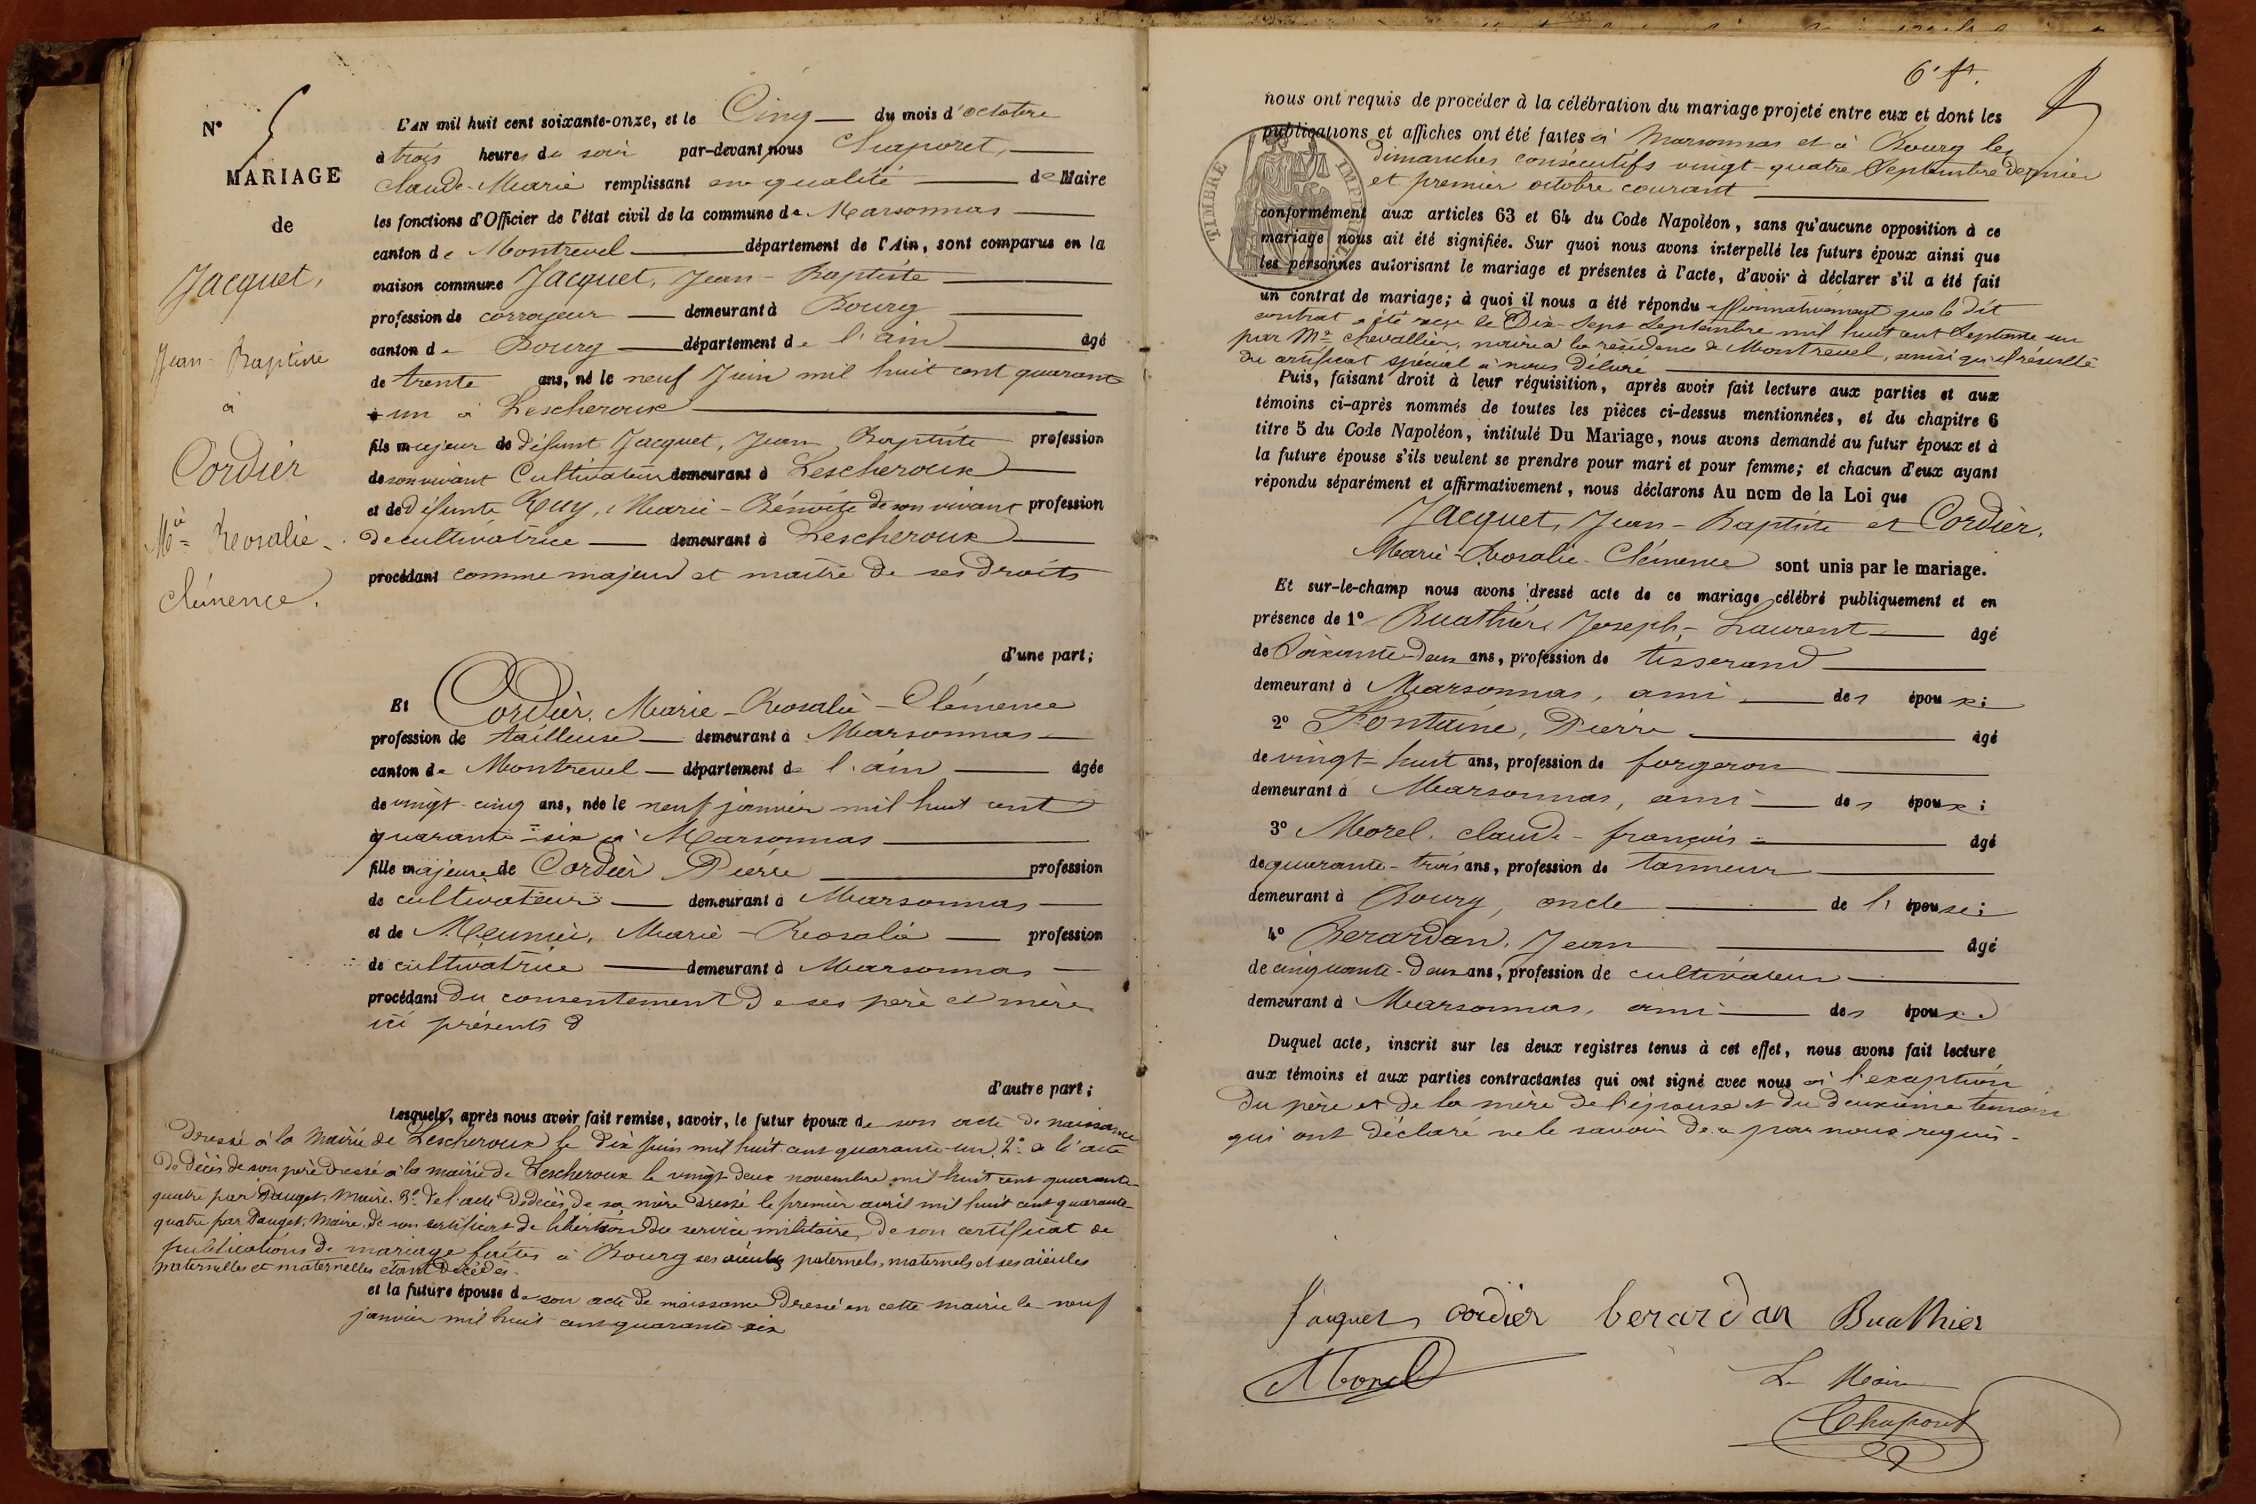 N° 5
MARIAGE
de
Jacquet,
Jean-Baptiste
à
Cordier
Mie Rosalie-
Clémence.
L'AN mil huit cent soixante-onze, et le Cinq du mois d'octobre
à trois heures du soir par-devant nous Chaporet,
Claude-Marie remplissant en qualité de Maire
les fonctions d'Officier de l'état civil de la commune de Marsonnas
canton de Montrevel département de l'Ain, sont comparus en la
maison commune Jacquet, Jean-Baptiste
profession de corroyeur demeurant à Bourg
canton de Bourg département de l'ain âgé
de trente ans, né le neuf Juin mil huit cent quarante
un à Lescheroux
fils majeur de défunt Jacquet, Jean Baptiste profession
de son vivant Cultivateur demeurant à Lescheroux
et de défunte Ruy, Marie-Bénoite de son vivant profession
de cultivatrice demeurant à Lescheroux
procédant comme majeur et maitre de ses droits
d'une part;
Et Cordier, Marie-Rosalie-Clémence
profession de tailleuse demeurant à Marsonnas
canton de Montrevel département de l'ain âgée
de vingt-cinq ans, née le neuf janvier mil huit cent
quarante-six à Marsonnas
fille majeure de Cordier Pierre profession
de cultivateur demeurant à Marsonnas
et de Meunier, Marie-Rosalie profession
de cultivatrice demeurant à Marsonnas
procédant du consentement de ses père et mère
ici présents
d'autre part;
Lesquels, après nous avoir fait remise, savoir, le futur époux de son acte de naissance
dressé à la Mairie de Lescheroux le dix Juin mil huit cent quarante-un, 2° de l'acte
de décès de son père dressé à la mairie de Lescheroux le vingt-deux novembre mil huit cent quarante-
quatre par Pauget, Maire. 3° de l'acte de décès de sa mère dressé le premier avril mil huit cent quarante-
quatre par Pauget, Maire, de son certificat de libération du service militaire, de son certificat de
publications de mariage faites à Bourg ses aieuls paternels, maternels et ses aïeules
paternelles et maternelles étant décédés.
et la future épouse de son acte de naissance dressé en cette mairie le neuf
janvier mil huit cent quarante six
6e ft.
nous ont requis de procéder à la célébration du mariage projeté entre eux et dont les
publications et affiches ont été faites à Marsonnas et à Bourg les
dimanches consécutifs vingt-quatre Septembre dernier
et premier octobre courant
TIMBRE IMPÉRIAL
conformément aux articles 63 et 64 du Code Napoléon, sans qu'aucune opposition à ce
mariage nous ait été signifiée. Sur quoi nous avons interpellé les futurs époux ainsi que
les personnes autorisant le mariage et présentes à l'acte, d'avoir à déclarer s'il a été fait
un contrat de mariage; à quoi il nous a été répondu affirmativement que le dit
contrat a été reçu le Dix-Sept Septembre mil huit cent Septante un
par Me Chevallier, notaire à la résidence de Montrevel, ainsi qu'il résulte
du certificat spécial à nous délivré
Puis, faisant droit à leur réquisition, après avoir fait lecture aux parties et aux
témoins ci-après nommés de toutes les pièces ci-dessus mentionnées, et du chapitre 6
titre 5 du Code Napoléon, intitulé Du Mariage, nous avons demandé au futur époux et à
la future épouse s'ils veulent se prendre pour mari et pour femme; et chacun d'eux ayant
répondu séparément et affirmativement, nous déclarons Au nom de la Loi que
Jacquet, Jean-Baptiste et Cordier,
Marie-Rosalie-Clémence sont unis par le mariage.
Et sur-le-champ nous avons dressé acte de ce mariage célébré publiquement et en
présence de 1° Buathier, Joseph-Laurent âgé
de Soixante-deux ans, profession de tisserand
demeurant à Marsonnas, ami des époux;
2° Fontaine, Pierre âgé
de vingt-huit ans, profession de forgeron
demeurant à Marsonnas, ami des époux;
3° Morel, claude-françois âgé
de quarante-trois ans, profession de tanneur
demeurant à Bourg, oncle de l'épouse;
4° Berardan, Jean âgé
de cinquante-deux ans, profession de cultivateur
demeurant à Marsonnas, ami des époux
Duquel acte, inscrit sur les deux registres tenus à cet effet, nous avons fait lecture
aux témoins et aux parties contractantes qui ont signé avec nous à l'exception
du père et de la mère de l'épouse et du deuxième témoin
qui ont déclaré ne le savoir de ce par nous requis.
Jacquet cordier berardan Buathier
Morel
Le Maire
Chaporet